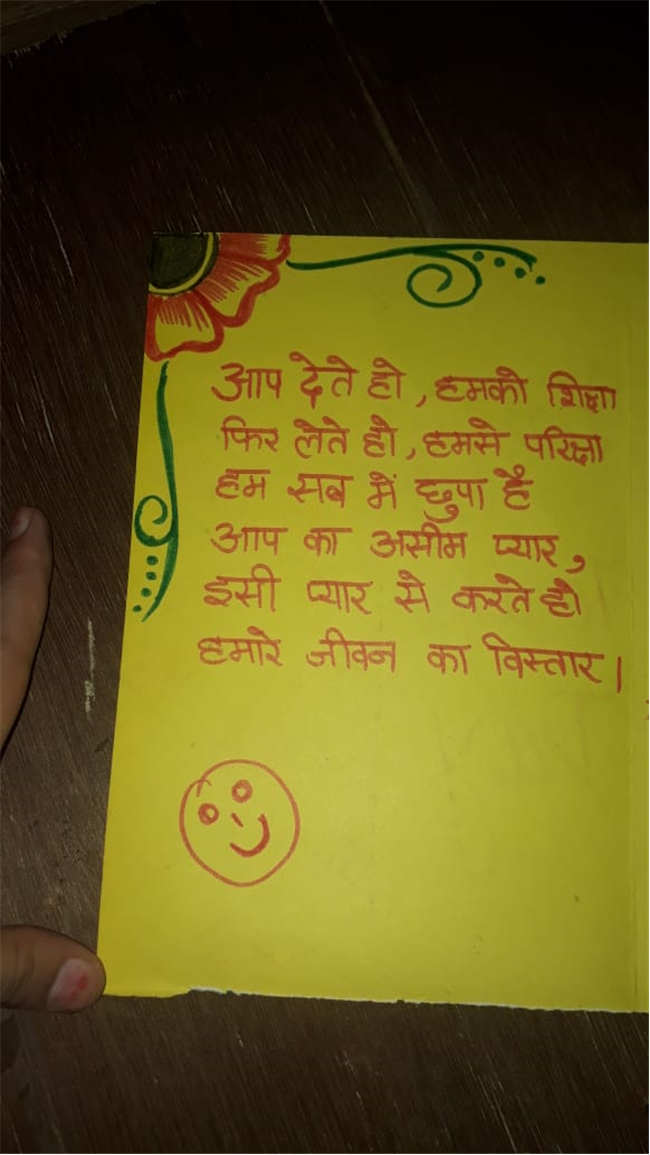 आप देते हो, हमको शिक्षा
फिर लेते हो, हमसे परिक्षा
हम सब में छुपा है
आप का असीम प्यार,
इसी प्यार से करते हो
हमारे जीवन का विस्तार।